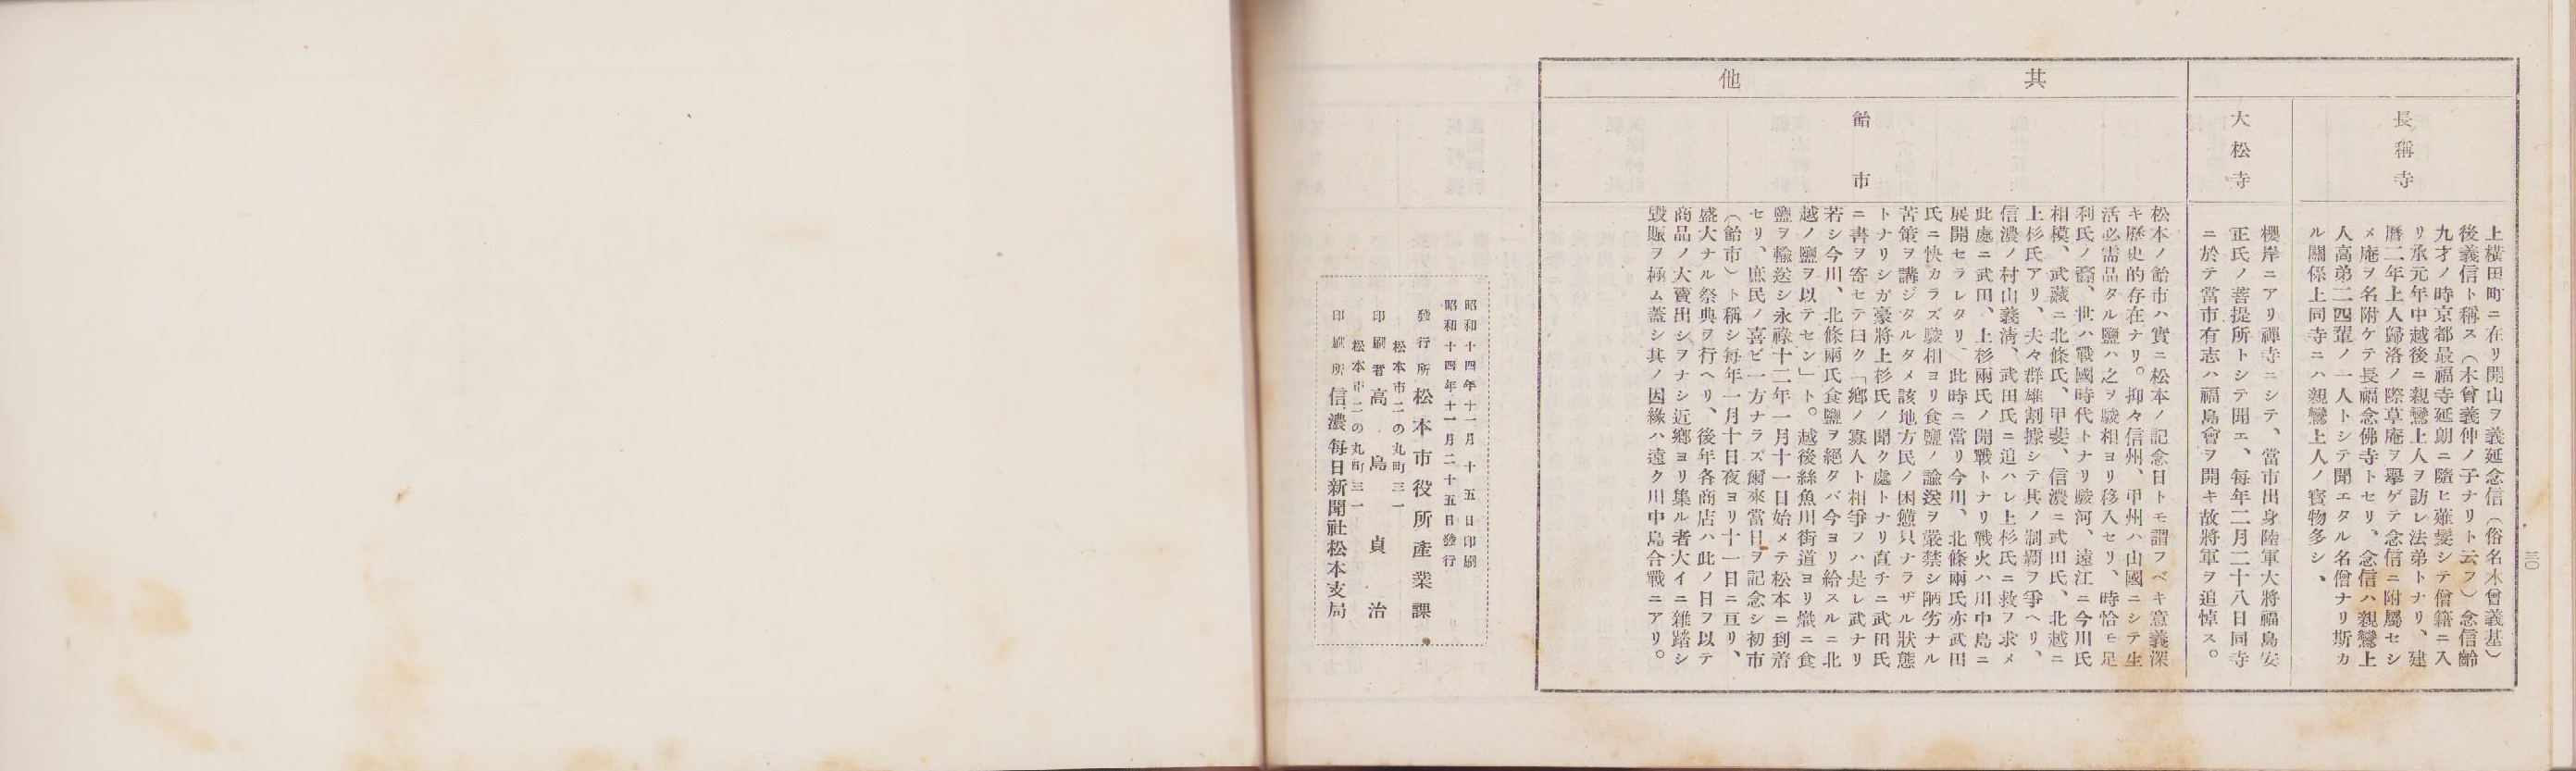 長稱寺
上橫田町ニ在リ開山ヲ義延念信(俗名木曾義基)
後義信ト稱ス(木曾義仲ノ子ナリト云フ)念信齡
九才ノ時京都最福寺延朗ニ隨ヒ薙髮シテ僧籍ニ入
リ承元年中越後ニ親鸞上人ヲ訪レ法弟トナリ、建
曆二年上人歸洛ノ際草庵ヲ擧ゲテ念信ニ附屬セシ
メ庵ヲ名附ケテ長福念佛寺トセリ、念信ハ親鸞上
人高弟二四輩ノ一人トシテ聞エタル名僧ナリ斯カ
ル關係上同寺ニハ親鸞上人ノ寳物多シ、
大松寺
櫻岸ニアリ禪寺ニシテ、當市出身陸軍大將福島安
正氏ノ菩提所トシテ聞エ、每年二月二十八日同寺
ニ於テ當市有志ハ福島會ヲ開キ故將軍ヲ追悼ス。
其他
飴市
松本ノ飴市ハ實ニ松本ノ記念日トモ謂フベキ意義深
キ歷史的存在ナリ。抑々信州、甲州ハ山國ニシテ生
活必需品タル鹽ハ之ヲ駿相ヨリ移入セリ、時恰モ足
利氏ノ裔、世ハ戰國時代トナリ駿河、遠江ニ今川氏
相模、武藏ニ北條氏、甲斐、信濃ニ武田氏、北越ニ
上杉氏アリ、夫々群雄割據シテ其ノ制覇ヲ爭ヘリ、
信濃ノ村山義淸、武田氏ニ追ハレ上杉氏ニ救ヲ求メ
此處ニ武田、上杉兩氏ノ開戰トナリ戰火ハ川中島ニ
展開セラレタリ、此時ニ當リ今川、北條兩氏亦武田
氏ニ快カラズ駿相ヨリ食鹽ノ諭送ヲ嚴禁シ陋劣ナル
苦策ヲ講ジタルタメ該地方民ノ困憊只ナラザル狀態
トナリシガ豪將上杉氏ノ聞ク處トナリ直チニ武田氏
ニ書ヲ寄セテ曰ク「鄕ノ寡人ト相爭フハ是レ武ナリ
若シ今川、北條兩氏食鹽ヲ絕タバ今ヨリ給スルニ北
越ノ鹽ヲ以テセン」ト。越後絲魚川街道ヨリ熾ニ食
鹽ヲ輸送シ永祿十二年一月十一日始メテ松本ニ到着
セリ、庶民ノ喜ビ一方ナラズ爾來當日ヲ記念シ初市
(飴市)ト稱シ每年一月十日夜ヨリ十一日ニ亘リ、
盛大ナル祭典ヲ行ヘリ、後年各商店ハ此ノ日ヲ以テ
商品ノ大賣出シヲナシ近鄕ヨリ集ル者大イニ雜踏シ
殷賑ヲ極ム蓋シ其ノ因緣ハ遠ク川中島合戰ニアリ。
三〇
昭和十四年十一月十五日印刷
昭和十四年十一月二十五日發行
發行所 松本市役所產業課
松本市二の丸町三一
印刷者 高島貞治
松本市二の丸町三一
印刷所 信濃每日新聞社松本支局